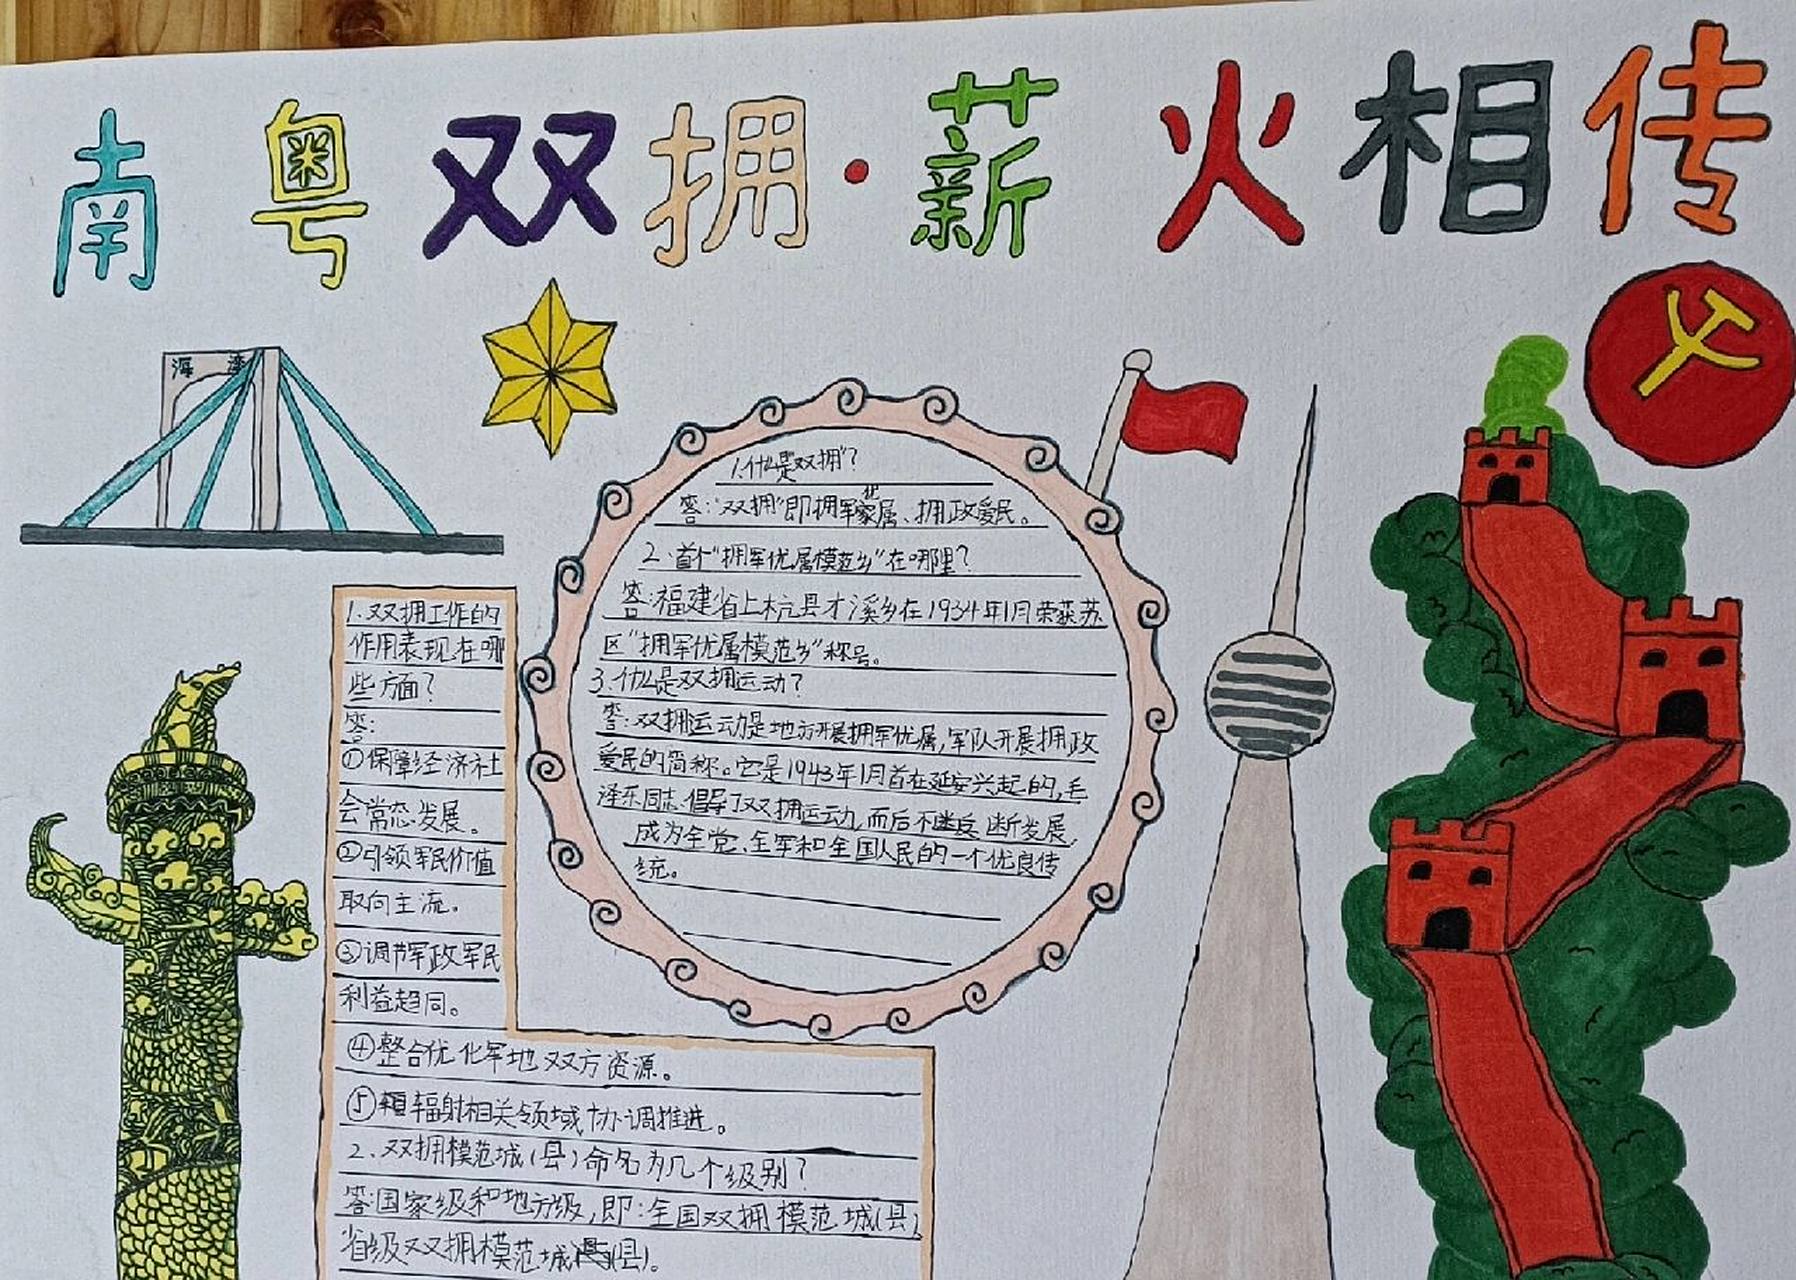 南粤双拥·薪火相传
1.什么是"双拥"?
答:"双拥"即拥军优属、拥政爱民。
2.首个"拥军优属模范乡"在哪里?
答:福建省上杭县才溪乡在1934年1月荣获苏
区"拥军优属模范乡"称号。
3.什么是双拥运动?
答:双拥运动是地方开展拥军优属,军队开展拥政
爱民的简称。它是1943年1月首在延安兴起的,毛
泽东同志倡导了双拥运动,而后不断发展,
成为全党、全军和全国人民的一个优良传
统。
1.双拥工作的
作用表现在哪
些方面?
答:
①保障经济社
会常态发展。
②引领军民价值
取向主流。
③调节军政军民
利益趋同。
④整合优化军地双方资源。
⑤辐射相关领域协调推进。
2.双拥模范城(县)命名为几个级别?
答:国家级和地方级,即:全国双拥模范城(县),
省级双拥模范城(县)。